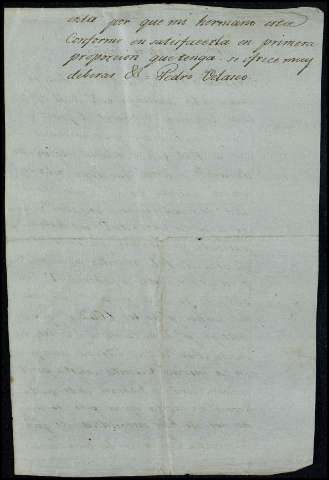 esta por que mi hermano esta
Conforme en satisfacerla en primera
proporcion que tenga. se ofrece muy
deberas &.. Pedro Velasco.